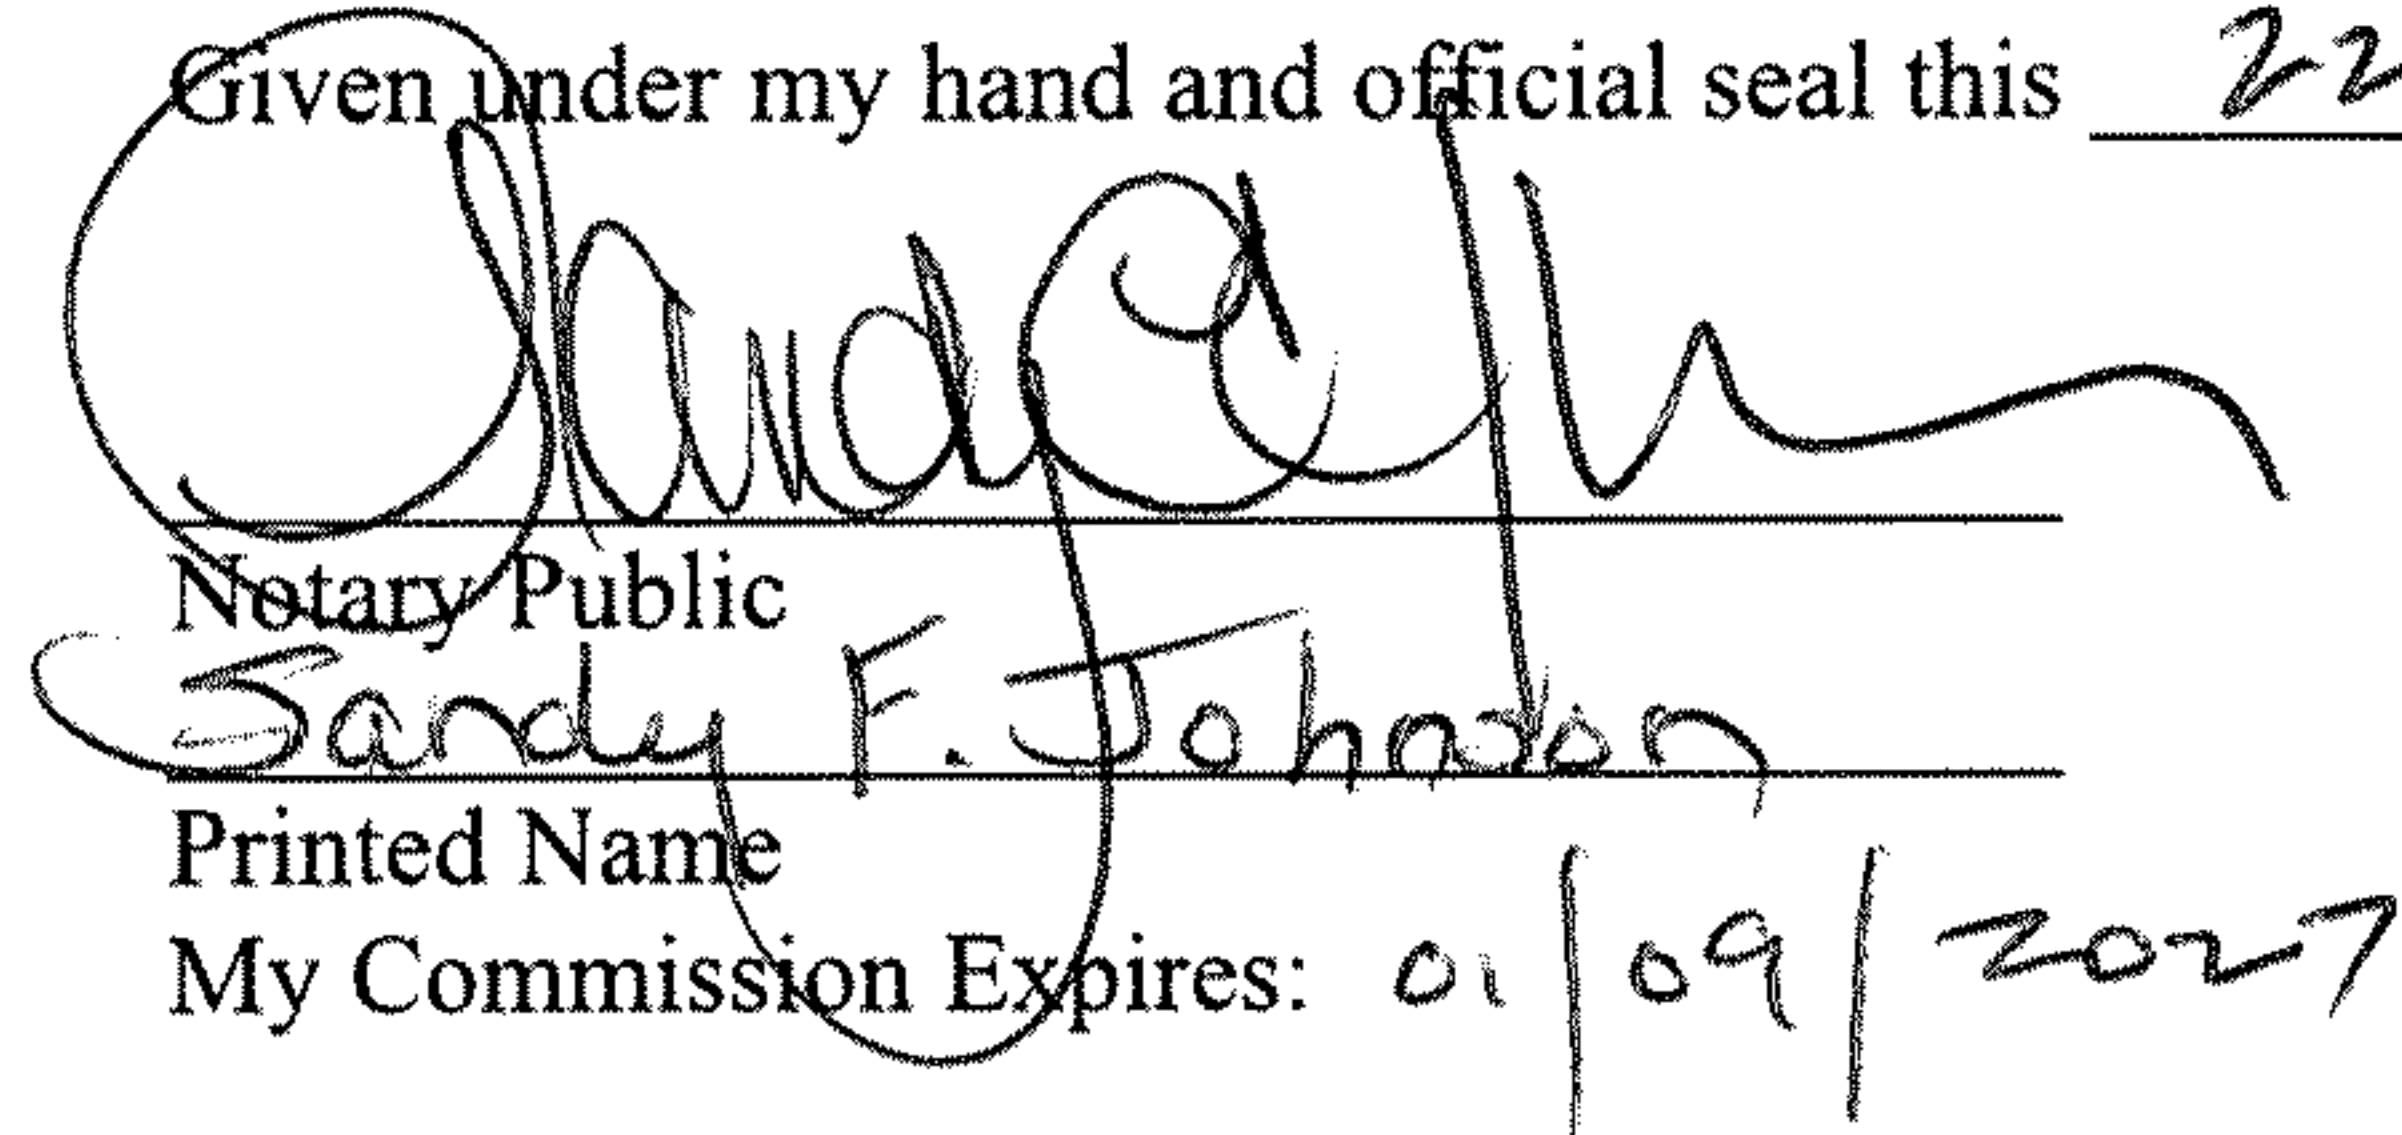 Given under my hand and official seal this 22
Notary Public
Sandy F. Johnson
Printed Name
My Commission Expires: 01/09/2027